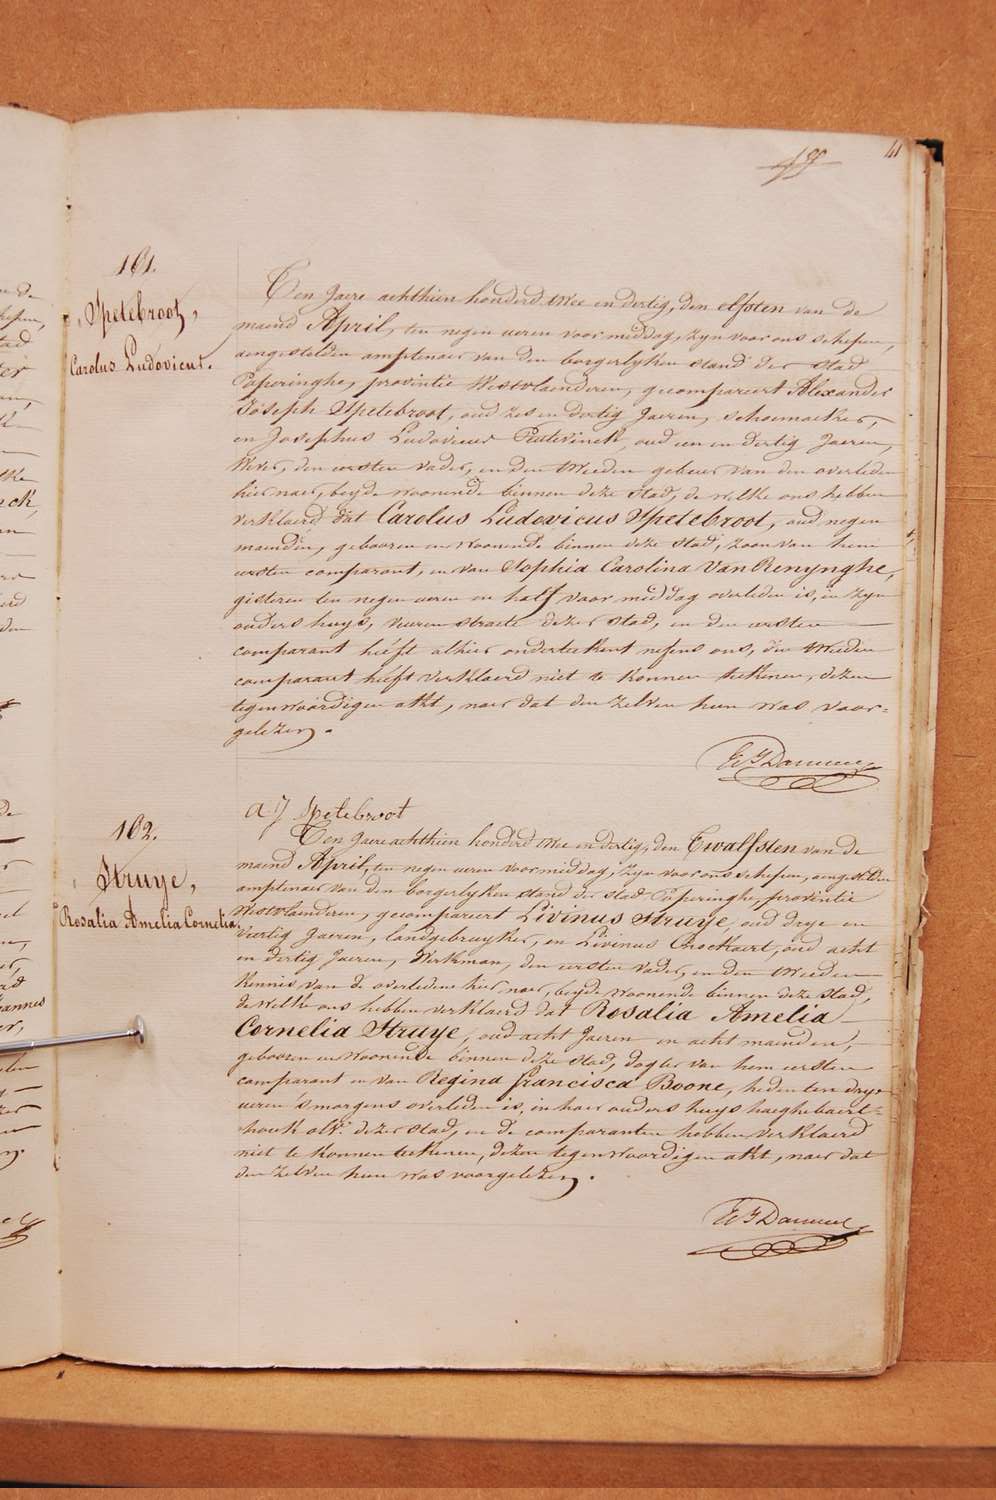 41
161.
Spetebroot,
Carolus Ludovicus.
Ten Jaere achthien honderd twee en dertig, den elfsten van de
maend April, ten negen ueren voormiddag, zyn voor ons schepen,
aengestelden amptenaer van den borgerlyken stand der stad
Poperinghe, provintie Westvlaenderen, gecompareert Alexander
Joseph Spetebroot, oud zes en dertig Jaeren, schoemaeker,
en Josephus Ludovicus oud een en dertig Jaeren,
Wever, den eersten vader, en den tweeden gebuer van den overleden
hier naer, beyde woonende binnen deze stad, de welke ons hebben
verklaerd dat Carolus Ludovicus Spetebroot, oud negen
maenden, gebooren en woonende binnen deze stad, zoon van hem
eersten comparant, en van Sophia Carolina Van Renynghe,
gisteren ten negen ueren en half voor middag overleden is, in zyn
ouders huys, veuren straete dezer stad, en den eersten
comparant heeft alhier onderteekent nefens ons, den tweeden
comparant heeft verklaerd niet te konnen teekenen, dezen
tegenwoordigen akt, naer dat den zelven hun was voor-
gelezen.
A J Spetebroot
162.
Struye,
Rosalia Amelia Cornelia.
Ten Jaere achthien honderd twee en dertig, den Twalfsten van de
maend April, ten negen ueren voormiddag, zyn voor ons schepen, aengestelden
amptenaer van den borgerlyken stand der stad Poperinghe, provintie
Westvlaenderen, gecompareert Livinus Struye, oud drye en
veertig Jaeren, landgebruyker, en Livinus oud acht
en dertig Jaeren, Werkman, den eersten vader, en den tweeden
kennis van de overledene hier naer, beyde woonende binnen deze stad,
de welke ons hebben verklaerd dat Rosalia Amelia
Cornelia Struye, oud acht Jaeren en acht maenden,
gebooren en woonende binnen deze stad, dogter van hem eersten
comparant en van Regina francisca Boone, heden ten drye
ueren 's morgens overleden is, in haer ouders huys haeghebaert-
houk dezer stad, en de comparanten hebben verklaerd
niet te konnen teekenen, dezen tegenwoordigen akt, naer dat
den zelven hun was voorgelezen.